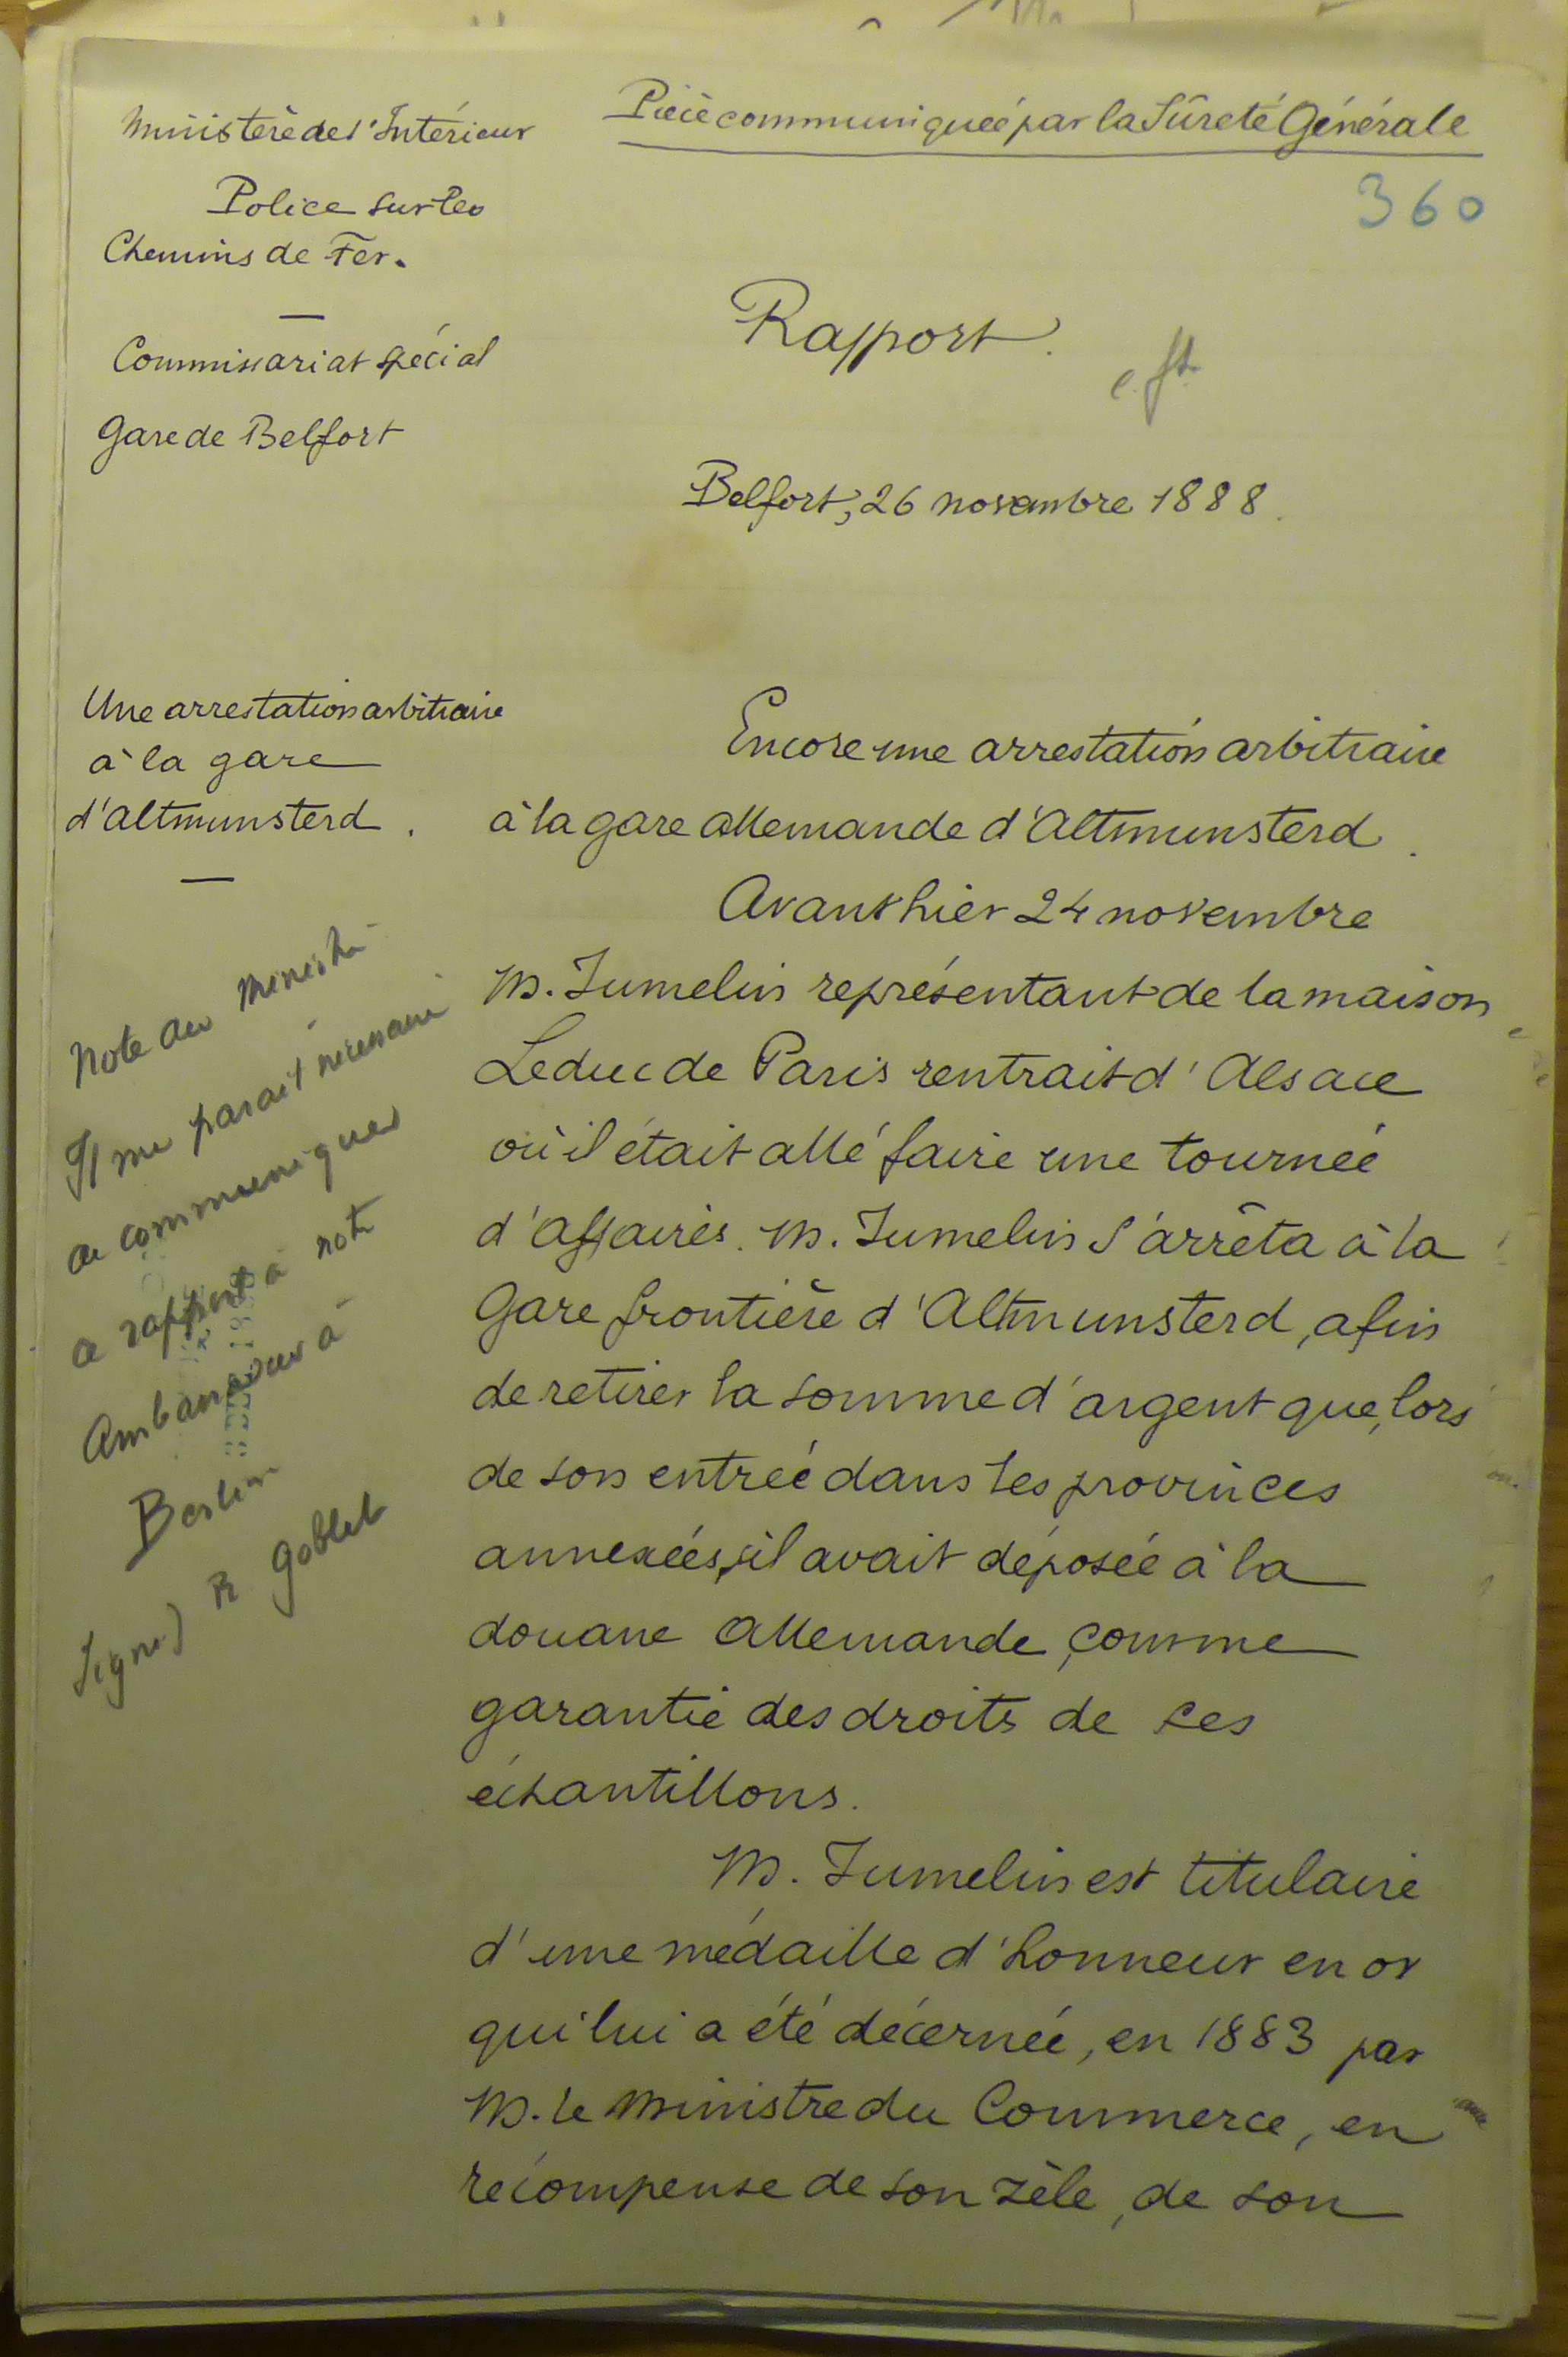 Ministère de l'Intérieur
Police sur les
Chemins de Fer.
Commissariat spécial
Gare de Belfort
Pièce communiquée par la Sûreté Générale
360
Rapport.
Belfort, 26 novembre 1888.
Une arrestation arbitraire
à la gare
d'Altmunsterd.
Note du Ministre
Il me parait nécessaire
de communiquer
ce rapport à notre
Ambassadeur à
Berlin
Signé) R Goblet
Encore une arrestation arbitraire
à la gare allemande d'Altmunsterd.
Avant hier 24 novembre
M. Jumelin représentant de la maison
Leduc de Paris rentrait d'Alsace
où il était allé faire une tournée
d'affaires. M. Jumelin s'arrêta à la
Gare frontière d'Altmunsterd, afin
de retirer la somme d'argent que, lors
de son entrée dans les provinces
annexées, il avait déposée à la
douane allemande, comme
garantie des droits de ses
échantillons.
M. Jumelin est titulaire
d'une médaille d'honneur en or
qui lui a été décernée, en 1883 par
M. le Ministre du Commerce, en
récompense de son zèle, de son